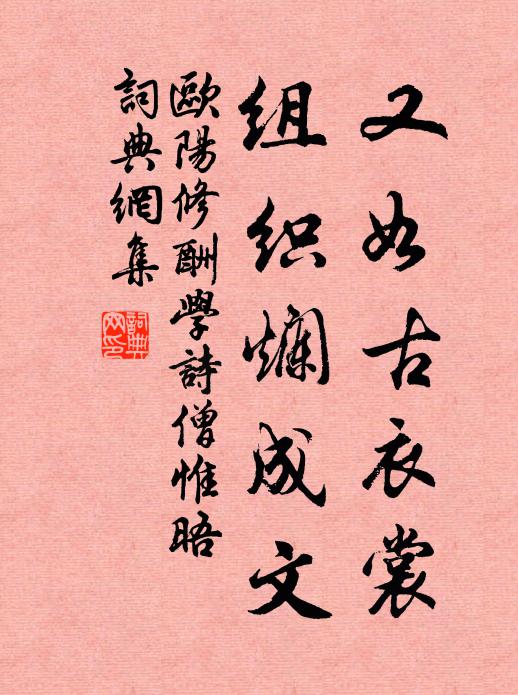 又如古衣裳
组织爛成文
歐陽修酬學詩僧惟晤
詞典網集
詞典网印